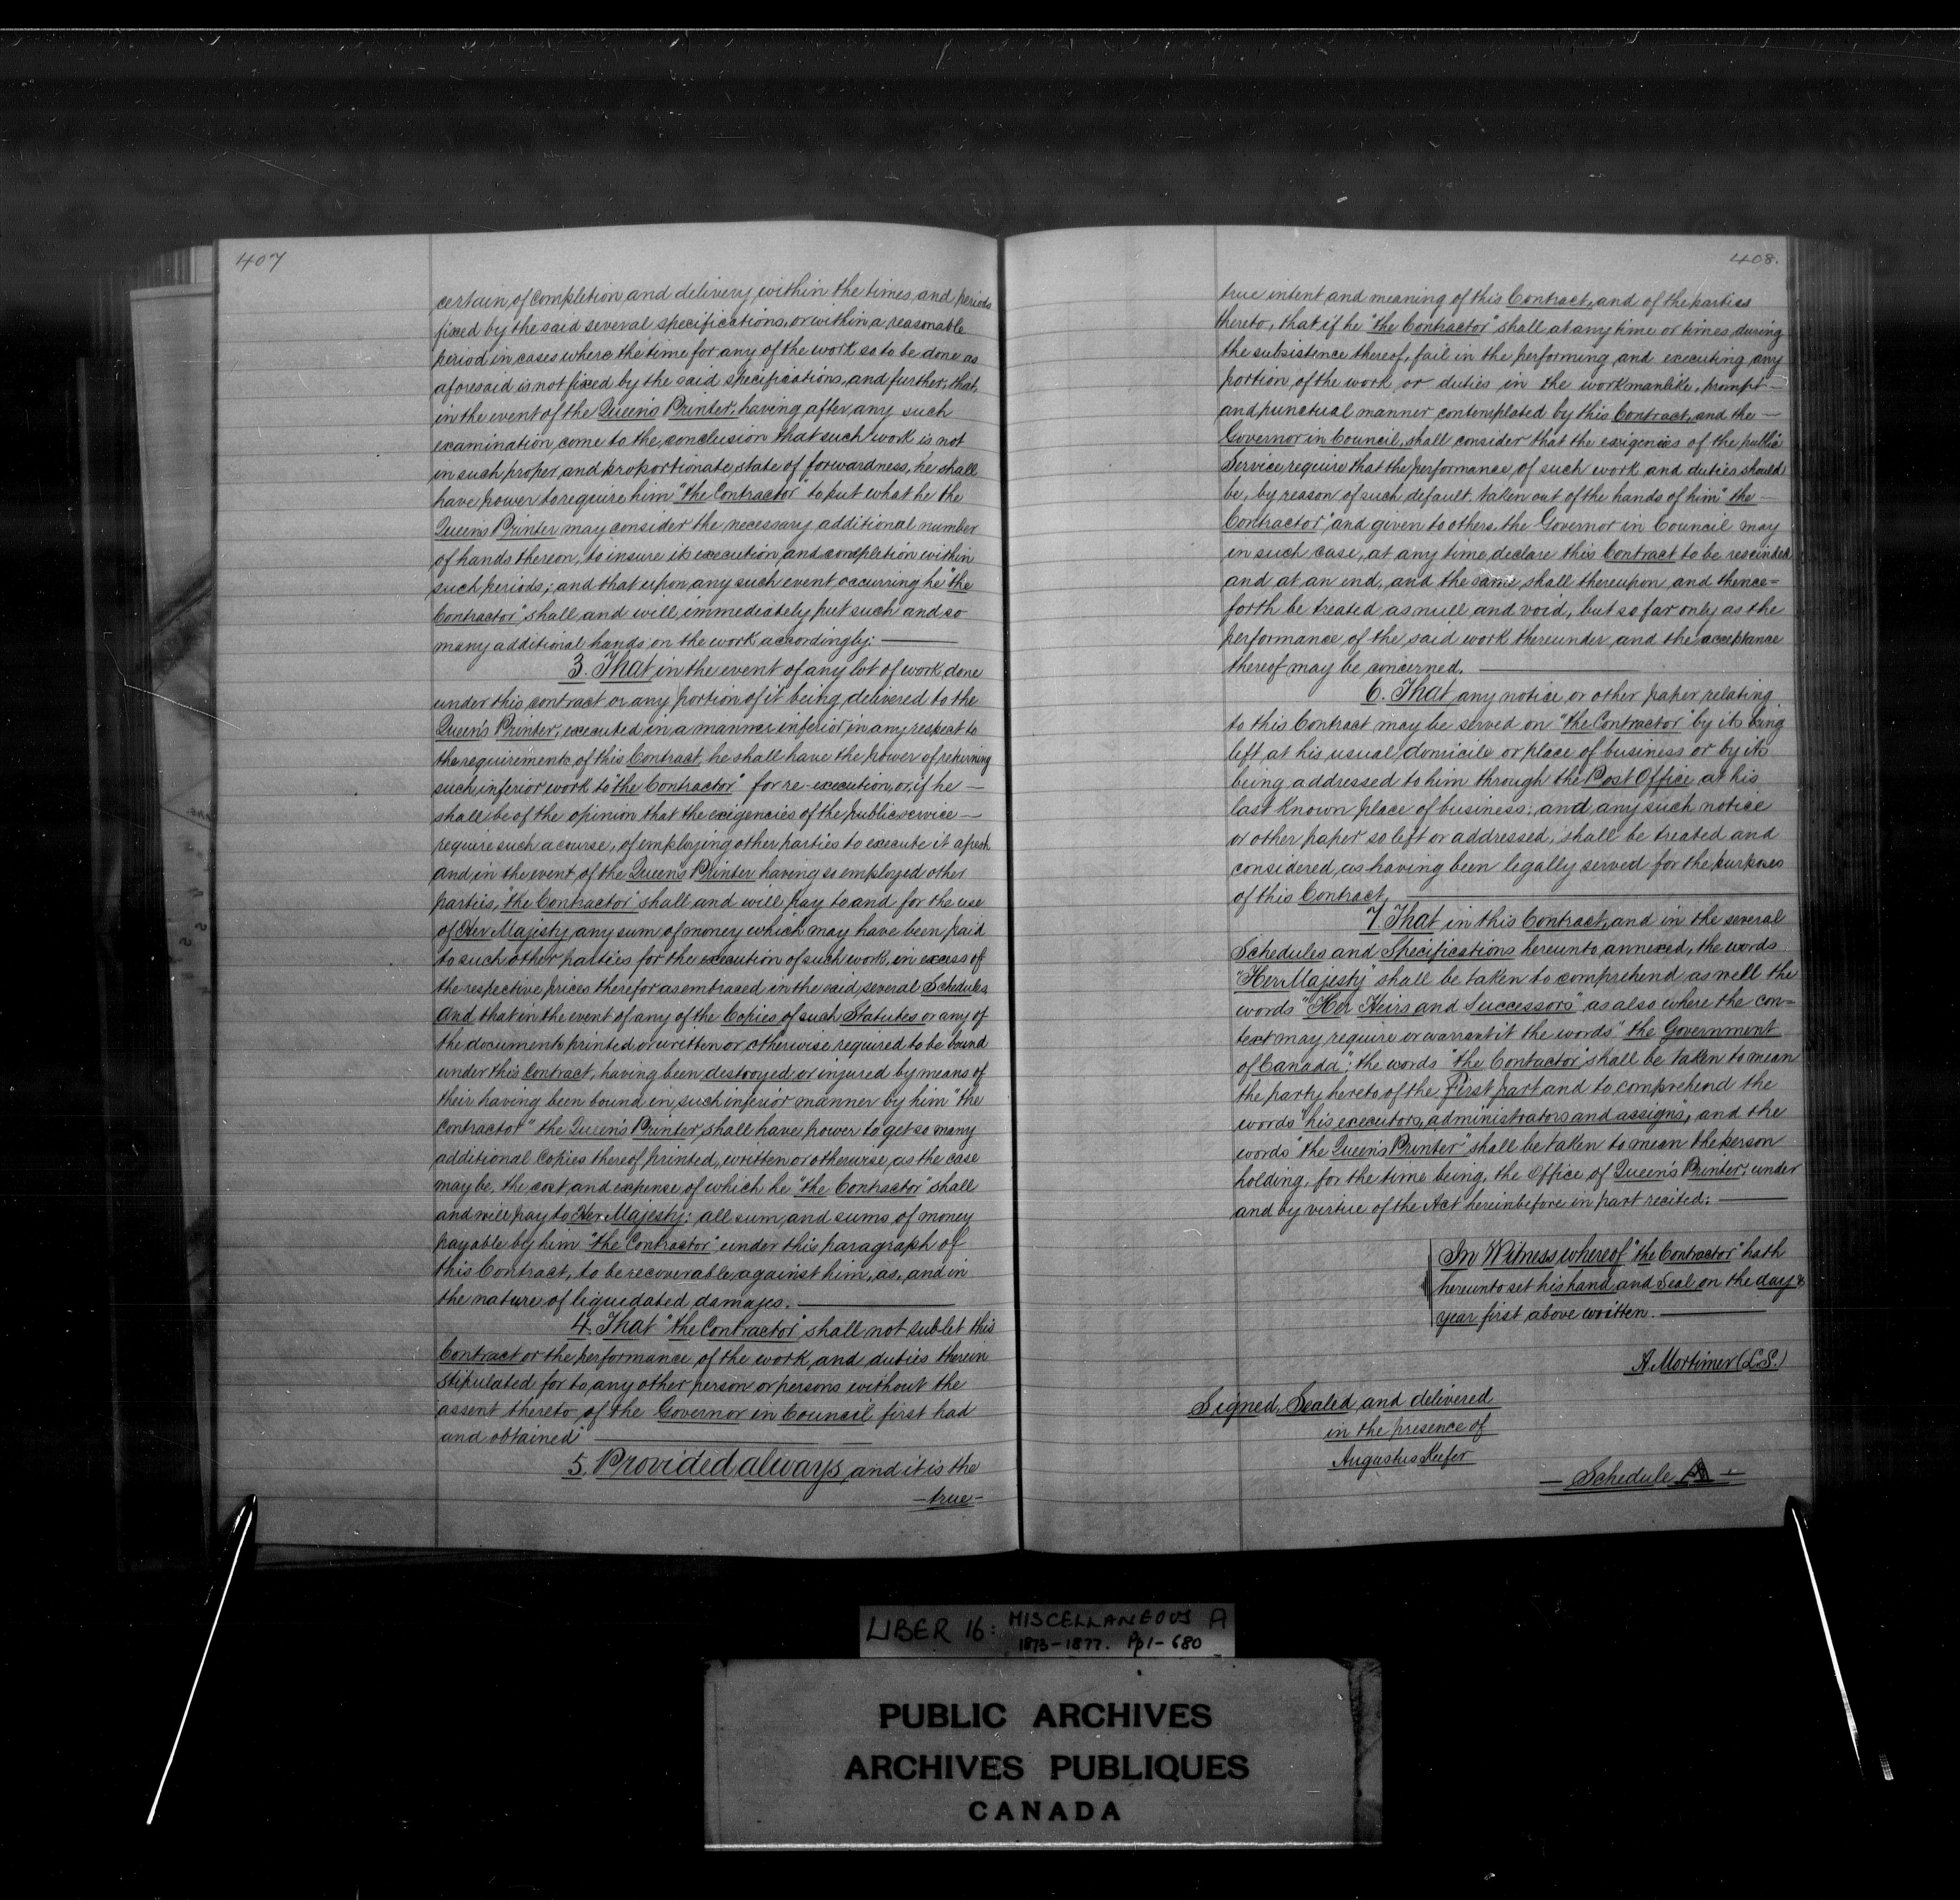 407
certain, of completion and delivery, within the times and periods
fixed by the said several specifications, or within a reasonable
period in cases where the time for any of the work so to be done as
aforesaid is not fixed by the said specifications, and further, that,
in the event of the Queen's Printer, having after, any such
examination, come to the, conclusion that such work is not
in such proper, and proportionate, state of forwardness, he shall
have power to require him "the Contractor" to put what he the
Queen's Printer may consider the necessary additional number
of hands thereon, to insure its execution, and completion within
such periods; and that upon, any such event occurring he "the
Contractor" shall and will, immediately put such and so
many additional hands on the work accordingly: —
3. That in the event of any lot of work, done
under this contract or any portion of it being, delivered to the
Queen's Printer, executed in a manner inferior in any respect to
the requirements of this Contract, he shall have the power of returning
such inferior work to "the Contractor" for re-execution, or, if he —
shall be of the opinion that the exigencies of the public service —
require such a course, of employing other parties to execute it afresh
and in the event, of the Queen's Printer having so employed other
parties, "the Contractor" shall and will pay to and for the use
of Her Majesty any sum of money which may have been paid
to such other parties for the execution of such work, in excess of
the respective prices therefor as embraced in the said several Schedules
And that in the event of any of the Copies of such Statutes or any of
the documents printed or written or otherwise required to be bound
under this Contract, having been destroyed or injured by means of
their having been bound in, such inferior manner by him "the
Contractor" the Queen's Printer, shall have power to get so many
additional Copies thereof printed, written or otherwise, as the case
may be, the cost and expense of which he "the Contractor" shall
and will pay to Her Majesty; all sum, and sums, of money
payable by him "the Contractor" under this paragraph of
this Contract, to be recoverable, against him, as, and in
the nature of liquidated damages. —
4. That "the Contractor" shall not sub-let this
Contract or the performance of the work, and duties therein
stipulated for to, any other person or persons without the
assent thereto, of the Governor in Council first had
and obtained —
5. Provided always, and it is the
—true—
408.
true intent and meaning of this Contract, and of the parties
thereto, that if he "the Contractor" shall at any time or times during
the subsistence thereof, fail in the performing and executing any
portion of the work or duties in the workmanlike, prompt —
and punctual manner contemplated by this Contract, and the —
Governor in Council, shall consider that the exigencies of the public
Service, require that the performance, of such work and duties should
be, by reason of such default, taken out of the hands of him "the —
Contractor" and given to others, the Governor in Council may
in such case, at any time, declare this Contract to be rescinded
and at an end, and the same, shall thereupon and thence=
forth be treated as null and void, but so far only as the
performance of the said work thereunder and the acceptance
thereof may be concerned. —
6. That any notice or other paper relating
to this Contract may be served on "the Contractor" by its being
left at his usual domicile or place of business or by its
being addressed to him through the Post Office at his
last known place of business; and any such notice
or other paper so left or addressed, shall be treated and
considered, as having been legally served for the purposes
of this Contract,
7. That in this Contract, and in the several
Schedules and Specifications hereunto annexed, the words
"Her Majesty" shall be taken to comprehend as well the
words "Her Heirs and Successors", as also where the con=
text may require or warrant it the words "the Government
of Canada"; the words "the Contactor", shall be taken to mean
the party hereto of the First part and to comprehend the
words "his executors, administrators and assigns", and the
words "the Queen's Printer" shall be taken to mean the person
holding, for the time being, the Office of Queen's Printer, under
and by virtue of the Act hereinbefore in part recited: —
In Witness whereof "the Contractor" hath
hereunto set his hand and Seal on the day &
year first above written. —
A. Mortimer (L.S.)
Signed, Sealed and delivered
in the presence of
Augustus Keefer
— Schedule A —
LIBER 16: MISCELLANEOUS A
1873-1877. Pp 1-680
PUBLIC ARCHIVES
ARCHIVES PUBLIQUES
CANADA